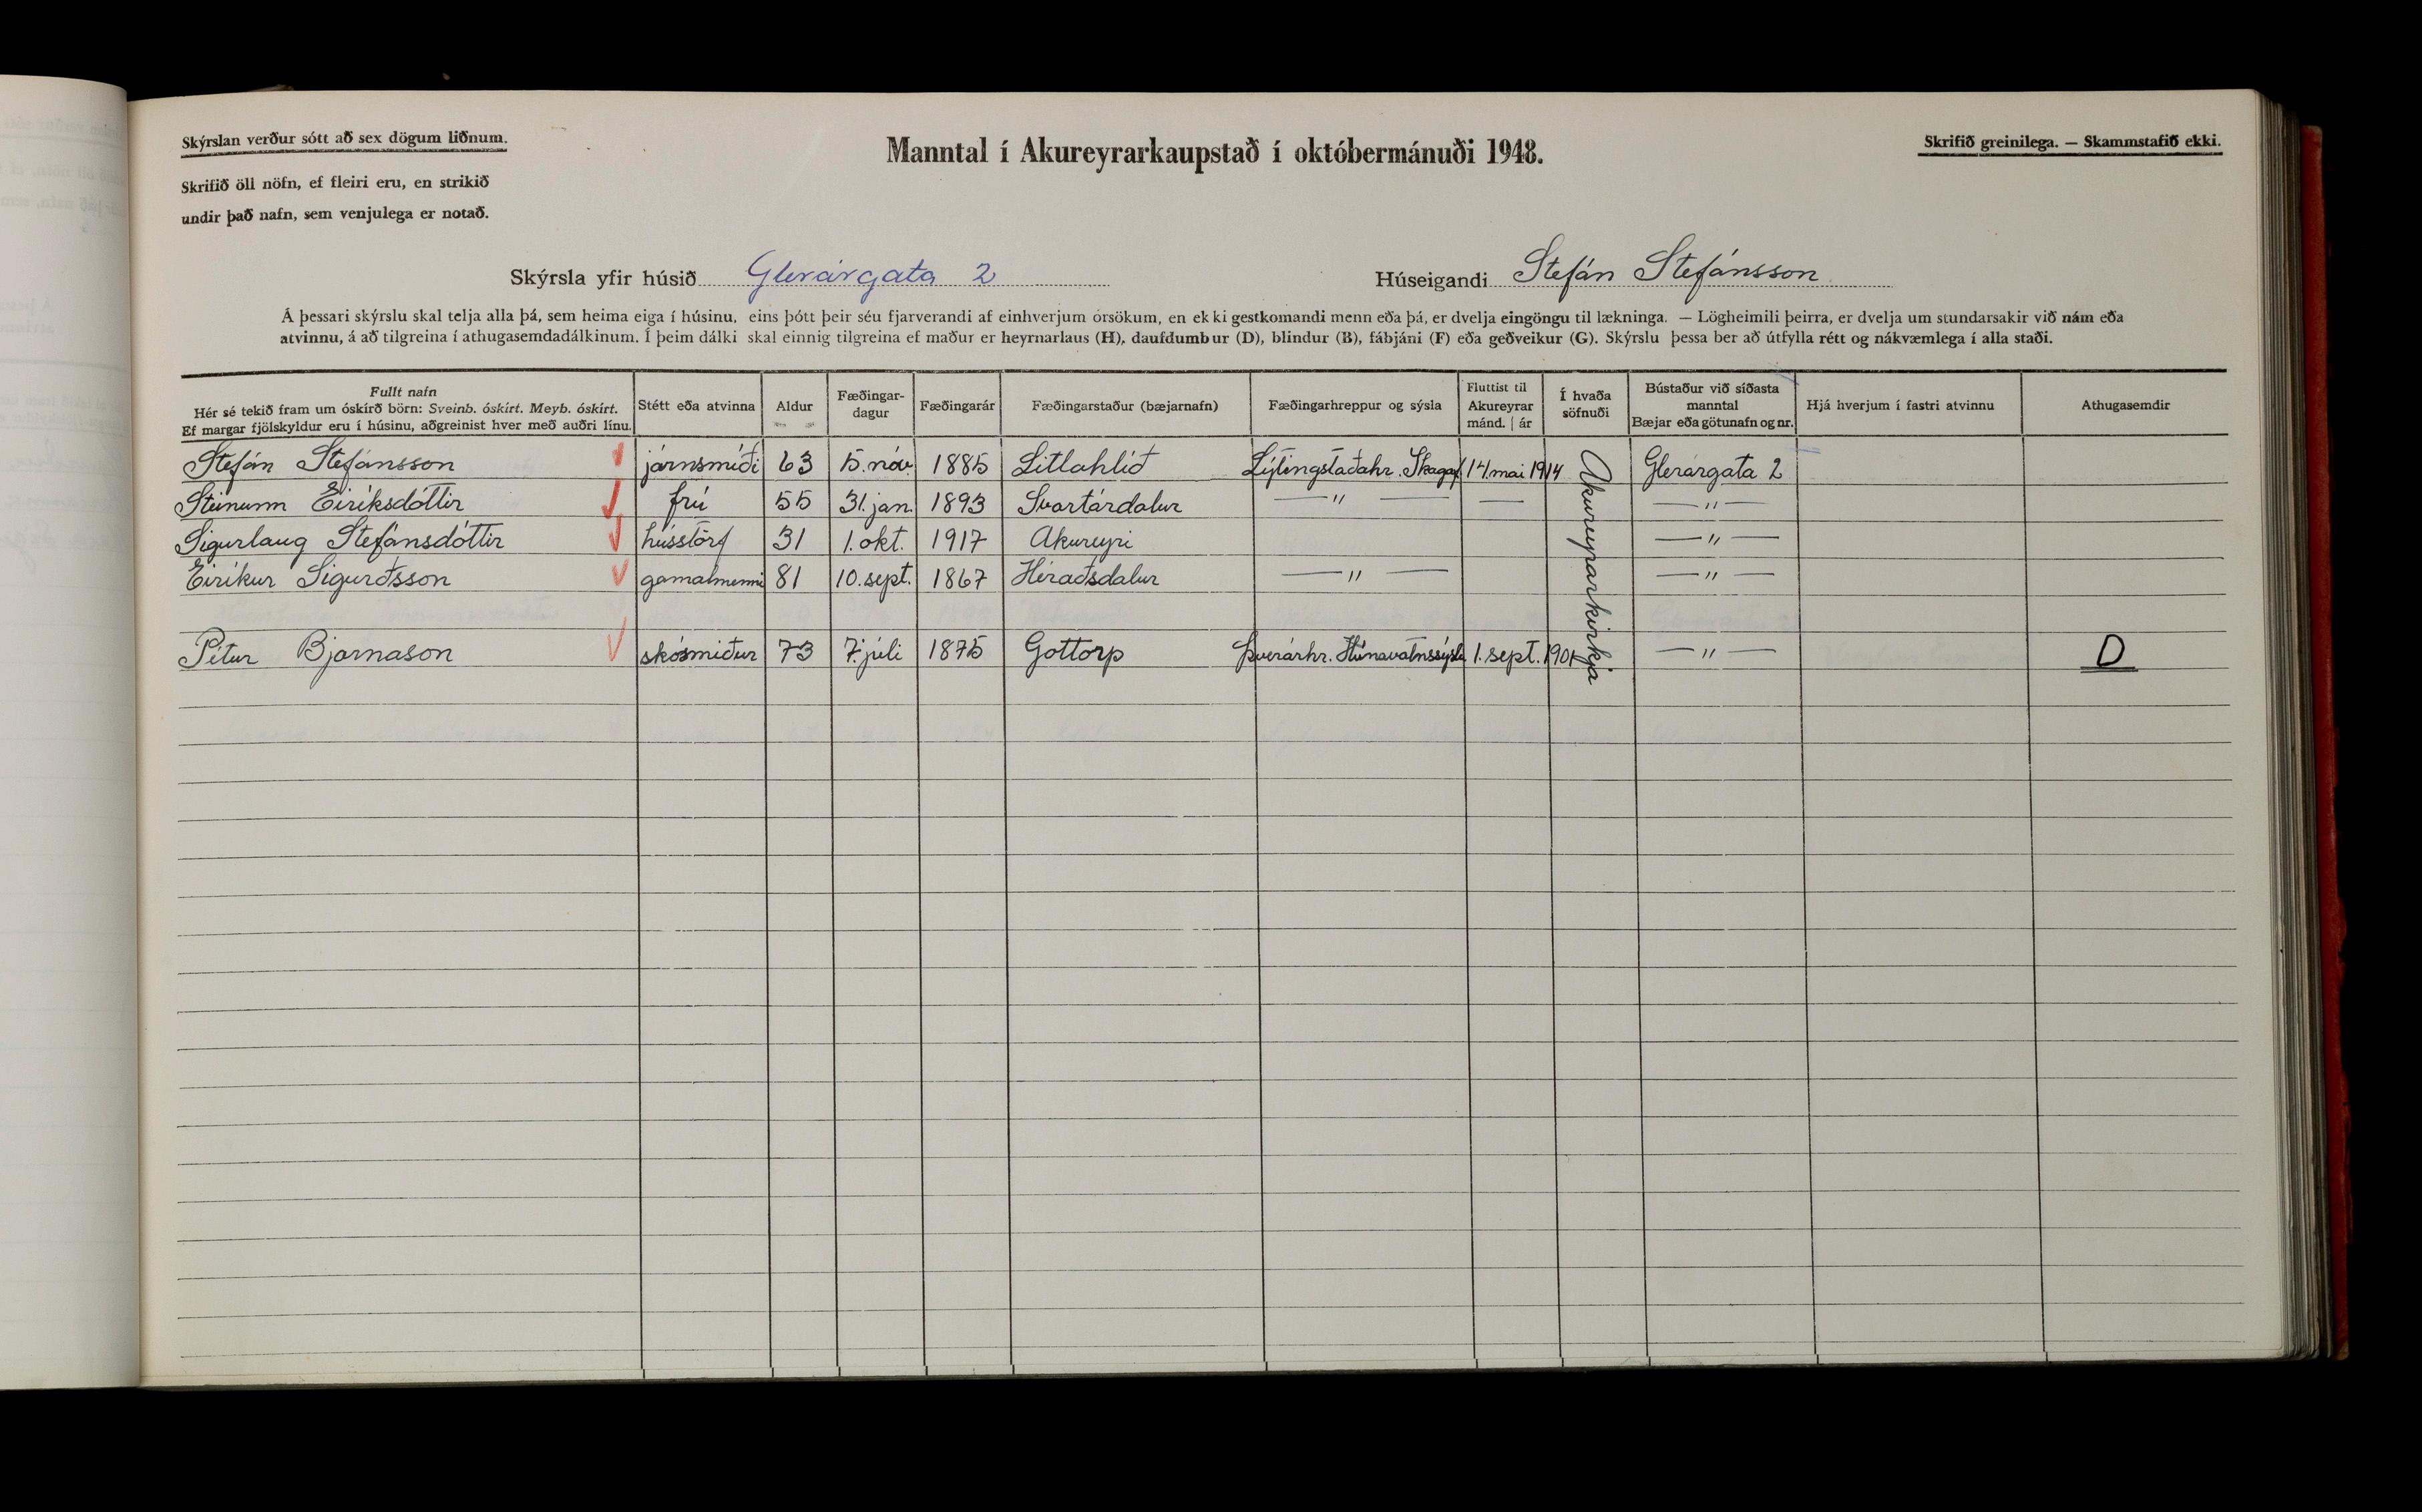 Skýrslan verður sótt að sex dögum liðnum.
Skrifið öll nöfn, ef fleiri eru, en strikið
undir það nafn, sem venjulega er notað.
Manntal í Akureyrarkaupstað í októbermánuði 1948.
Skrifið greinilega. — Skammstafið ekki.
Skýrsla yfir húsið Glerárgata 2 Húseigandi Stefán Stefánsson
Á þessari skýrslu skal telja alla þá, sem heima eiga í húsinu, eins þótt þeir séu fjarverandi af einhverjum orsökum, en ekki gestkomandi menn eða þá, er dvelja eingöngu til lækninga. — Lögheimili þeirra, er dvelja um stundarsakir við nám eða
atvinnu, á að tilgreina í athugasemdadálkinum. Í þeim dálki skal einnig tilgreina ef maður er heyrnarlaus (H), daufdumbur (D), blindur (B), fábjáni (F) eða geðveikur (G). Skýrslu þessa ber að útfylla rétt og nákvæmlega í alla staði.
Fullt nafn
Hér sé tekið fram um óskírð börn: Sveinb. óskírt. Meyb. óskírt.
Ef margar fjölskyldur eru í húsinu, aðgreinist hver með auðri línu.
Stétt eða atvinna
Aldur
Fæðingar-
dagur
Fæðingarár
Fæðingarstaður (bæjarnafn)
Fæðingarhreppur og sýsla
Fluttist til
Akureyrar
mánd. | ár
Í hvaða
söfnuði
Bústaður við síðasta
manntal
Bæjar eða götunafn og nr.
Hjá hverjum í fastri atvinnu
Athugasemdir
Stefán Stefánsson járnsmiði 63 15. nóv. 1885 Litlahlíð Lýtingstaðahr. Skagaf. 14. mai 1914 Glerárgata 2
Steinunn Eiríksdóttir frú 55 31. jan. 1893 Svartárdalur — " — — — " —
Sigurlaug Stefánsdóttir hússtörf 31 1. okt. 1917 Akureyri — " —
Eiríkur Sigurðsson gamalmenni 81 10. sept. 1867 Héraðsdalur — " — — " —
Pétur Bjarnason skósmiður 73 7. júli 1875 Gottorp Þverárhr. Húnavatnssýsla 1. sept. 1901 — " — D
Akureyrarkirkja